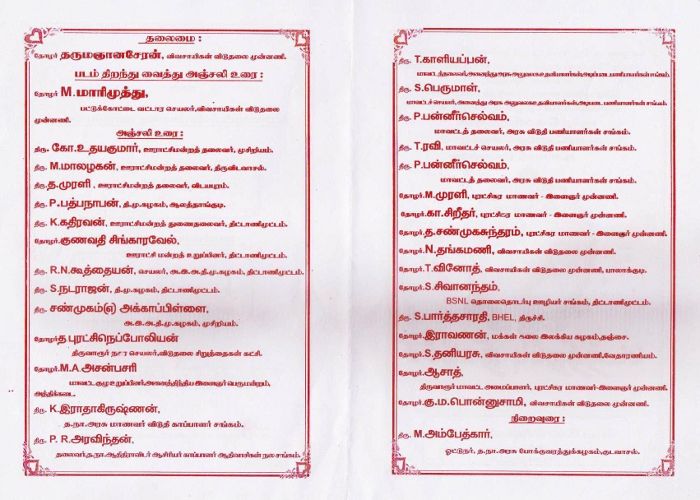 தலைமை :
தோழர் தருமஞானசேரன், விவசாயிகள் விடுதலை முன்னணி.
படம் திறந்து வைத்து அஞ்சலி உரை :
தோழர் M.மாரிமுத்து,
பட்டுக்கோட்டை வட்டார செயலர்,விவசாயிகள் விடுதலை
முன்னணி.
அஞ்சலி உரை :
திரு. கோ.உதயகுமார், ஊராட்சிமன்றத் தலைவர், முசிறியம்.
திரு. M.மாலழகன், ஊராட்சிமன்றத் தலைவர், திருவிடவாசல்.
திரு.த.முரளி , ஊராட்சிமன்றத் தலைவர், விடயபுரம்.
திரு. P.பத்பநாபன், தி.மு.கழகம், ஆலத்தாங்குடி.
திரு. K.கதிரவன், ஊராட்சிமன்றத் துணைதலைவர், திட்டாணிமுட்டம்.
தோழர்.குணவதி சிங்காரவேல்,
ஊராட்சி மன்றத் உறுப்பினர், திட்டாணிமுட்டம்.
திரு. R.N.கூத்தையன், செயலர், அ.இ.அ.தி.மு.கழகம், திட்டாணிமுட்டம்.
திரு. S.நடராஜன், தி.மு.கழகம், திட்டாணிமுட்டம்.
திரு. சண்முகம்(எ) அக்காப்பிள்ளை,
அ.இ.அ.தி.மு.கழகம், முசிறியம்.
தோழர்.த புரட்சிநெப்போலியன்
திருவாரூர் நகர செயலர்,விடுதலை சிறுத்தைகள் கட்சி.
தோழர்.M.A.அசன்பசரி
மாவட்ட குழு உறுப்பினர்,அனைத்திந்திய இளைஞர் பெருமன்றம்,
அத்திக்கடை.
திரு. K.இராதாகிருஷ்ணன்,
த.நா.அரசு மாணவர் விடுதி காப்பாளர் சங்கம்.
திரு. P. R.அரவிந்தன்.
தலைவர்,த.நா.ஆதிதிராவிடர் ஆசிரியர் காப்பாளர் ஆதிவாசிகள் நல சங்கம்.
திரு. T.காளியப்பன்,
திரு. S.பெருமாள்,
திரு. P.பன்னீர்செல்வம்,
மாவட்டத் தலைவர், அரசு விடுதி பணியாளர்கள் சங்கம்.
திரு. T.ரவி, மாவட்டச் செயலர், அரசு விடுதி பணியாளர்கள் சங்கம்.
திரு. P.பன்னீர்செல்வம்,
மாவட்டத் தலைவர், அரசு விடுதி பணியாளர்கள் சங்கம்.
தோழர்.M.முரளி, புரட்சிகர மாணவர் - இளைஞர் முன்னணி.
தோழர்.கா.சிறீதர், புரட்சிகர மாணவர் - இளைஞர் முன்னணி.
தோழர்.த.சண்முகசுந்தரம், புரட்சிகர மாணவர் - இளைஞர் முன்னணி.
தோழர்.N.தங்கமணி, விவசாயிகள் விடுதலை முன்னணி.
தோழர்.T.வினோத், விவசாயிகள் விடுதலை முன்னணி, பாலாக்குடி.
தோழர்.S.சிவானந்தம்,
BSNL தொலைதொடர்பு ஊழியர் சங்கம், திட்டாணிமுட்டம்.
திரு. S.பார்த்தசாரதி, BHEL, திருச்சி.
தோழர்.இராவணன், மக்கள் கலை இலக்கிய கழகம்,தஞ்சை.
தோழர்.S.தனியரசு, விவசாயிகள் விடுதலை முன்னணி,வேதாரணியம்.
தோழர்.ஆசாத்,
திருவாரூர் மாவட்ட அமைப்பாளர், புரட்சிகர மாணவர்-இளைஞர் முன்னணி.
தோழர்.கு.ம.பொன்னுசாமி, விவசாயிகள் விடுதலை முன்னணி.
நிறைவுரை :
திரு. M.அம்பேத்கார்,
ஓட்டுநர், த.நா.அரசு போக்குவரத்துக்கழகம், குடவாசல்.